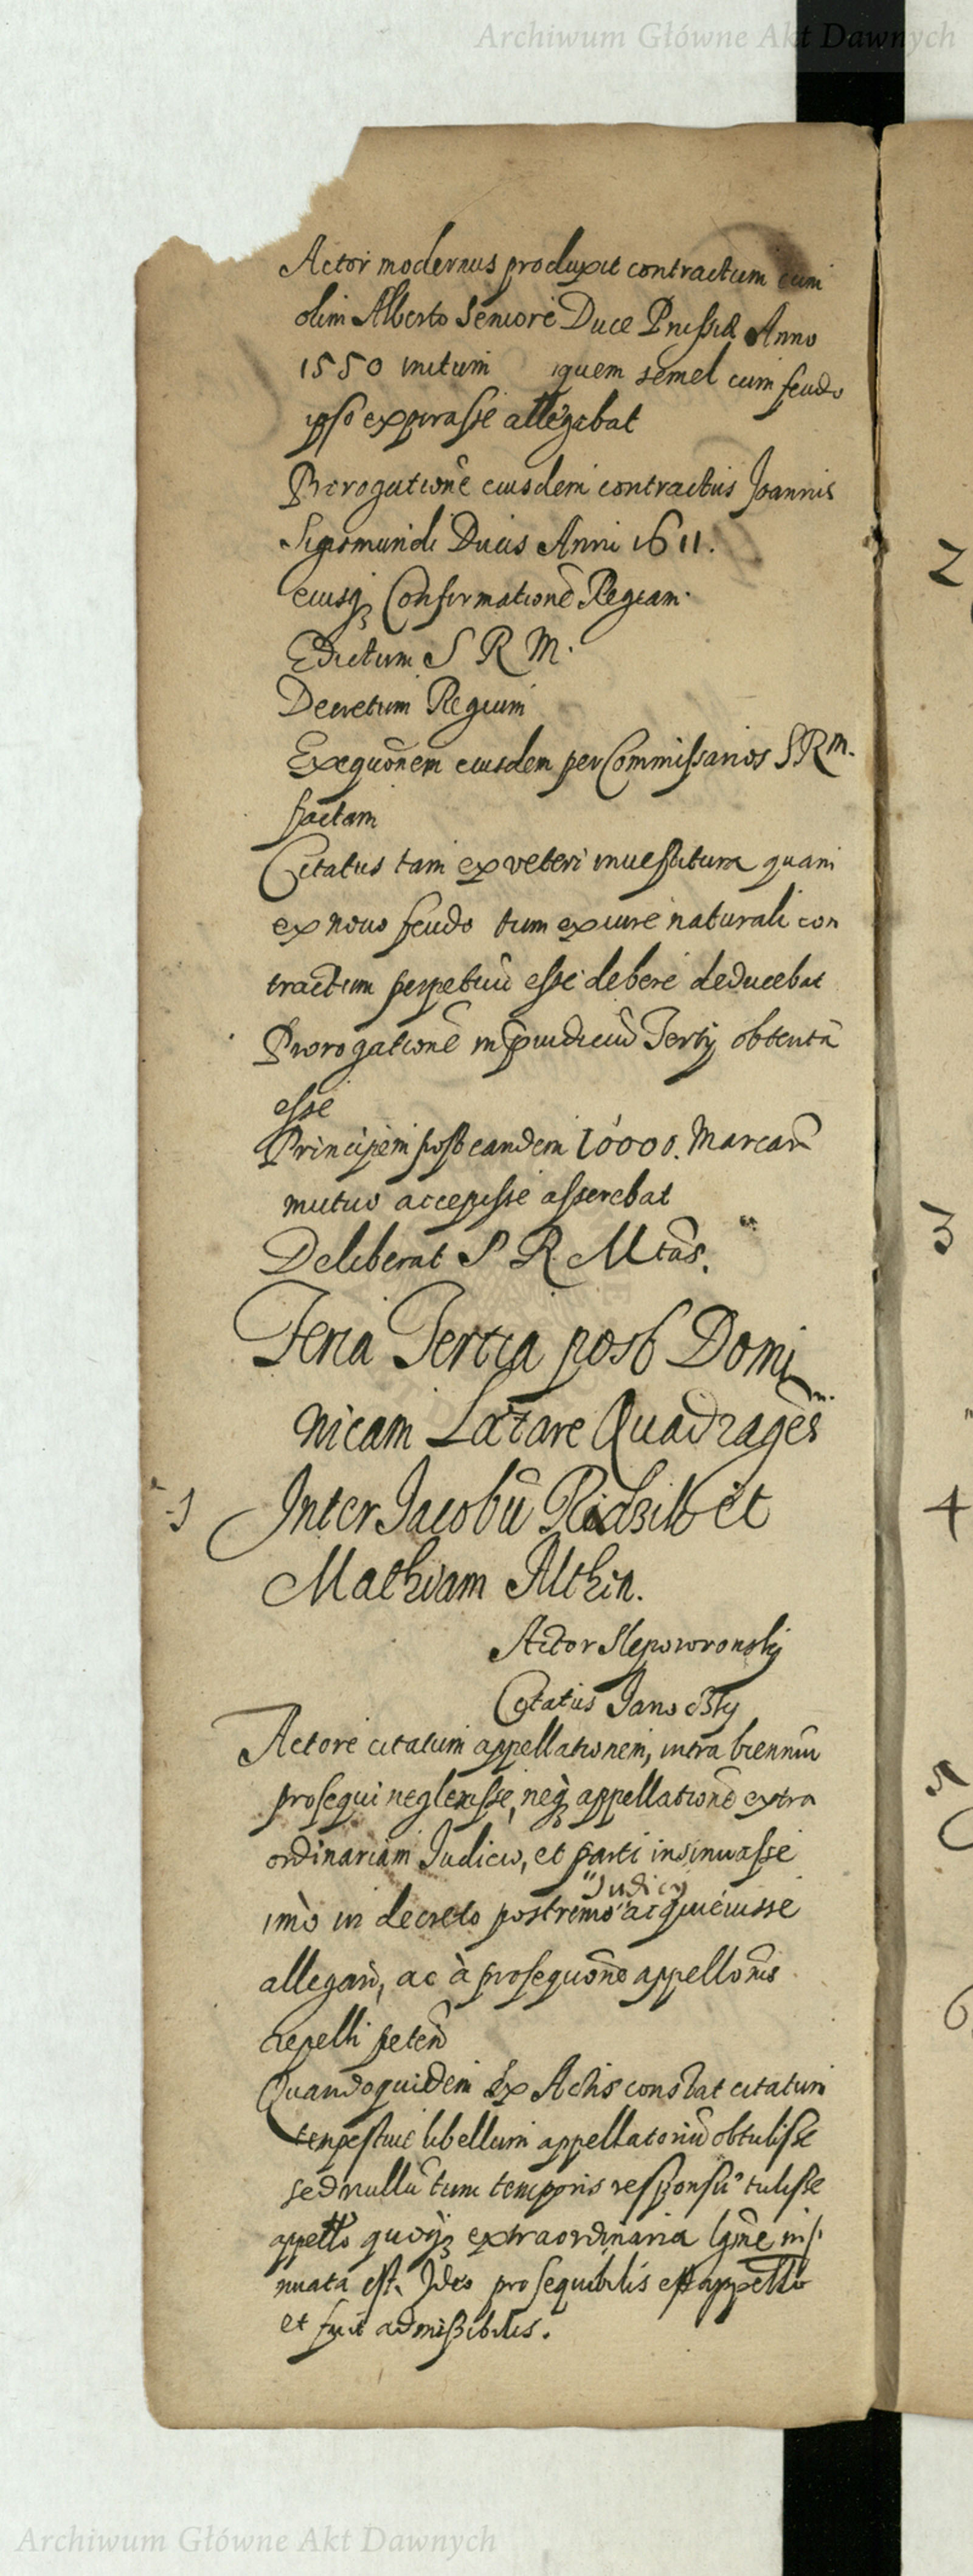 Archiwum Główne Akt Dawnych
Actor modernus produxit contractum cum
olim Alberto Seniore Duce Prussiæ Anno
1550 initum quem semel cum feudo
ipso expirasse allegabat
Prorogationē eiusdem contractus Joannis
Sigismundi Ducis Anni 1611.
eiusqꝫ Confirmationē Regiam.
Edictum S R M.
Decretum Regium
Exequōnem eiusdem per Commissarios SRM.
factam
Citatus tam ex veteri inuestitura quam
ex nouo feudo tum ex iure naturali con
tractum perpetuū esse debere deducebat
Prorogationē in p̄iudiciū Tertij obtentā
esse
Principem post eandem 10000. Marcarū
mutuo accepisse asserebat
Deliberat S R Mtas.
Feria Tertia post Domi
nicam Lætare Quadrages̄
1 Inter Jacobū Ridzik et
Mathiam Althin.
Actor Slepowronsky
Citatus Janoczky
Actore citatum appellationem, intra biennium
prosequi neglexisse, neqꝫ appellationē extra
ordinariam Judicio, et parti insinuasse
Judicij
imò in decreto postremo acquieuisse
allegan̄, ac à prosequōne appellōnis
repelli peten̄
Quandoquidem Ex Actis constat citatum
tempestiue libellum appellatoriū obtulisse
sed nullū tum temporis responsū tulisse
appello quoqꝫ extraordinaria lgīme insi
nuata est. Ideo prosequibilis est appello
et fuit admissibilis.
2
3
4
5
6
Archiwum Główne Akt Dawnych